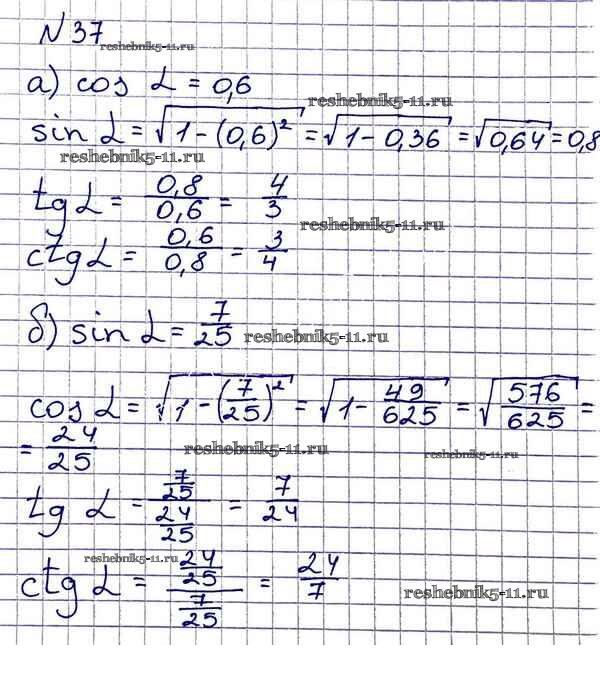 № 37
reshebnik5-11.ru
а) cos α = 0,6
reshebnik5-11.ru
sin α = √(1-(0,6)²) = √(1-0,36) = √(0,64) = 0,8
reshebnik5-11.ru
tg α = 0,8/0,6 = 4/3
reshebnik5-11.ru
ctg α = 0,6/0,8 = 3/4
б) sin α = 7/25
reshebnik5-11.ru
cos α = √(1-(7/25)²) = √(1-49/625) = √(576/625) =
= 24/25
reshebnik5-11.ru
reshebnik5-11.ru
tg α = (7/25)/(24/25) = 7/24
reshebnik5-11.ru
ctg α = (24/25)/(7/25) = 24/7
reshebnik5-11.ru